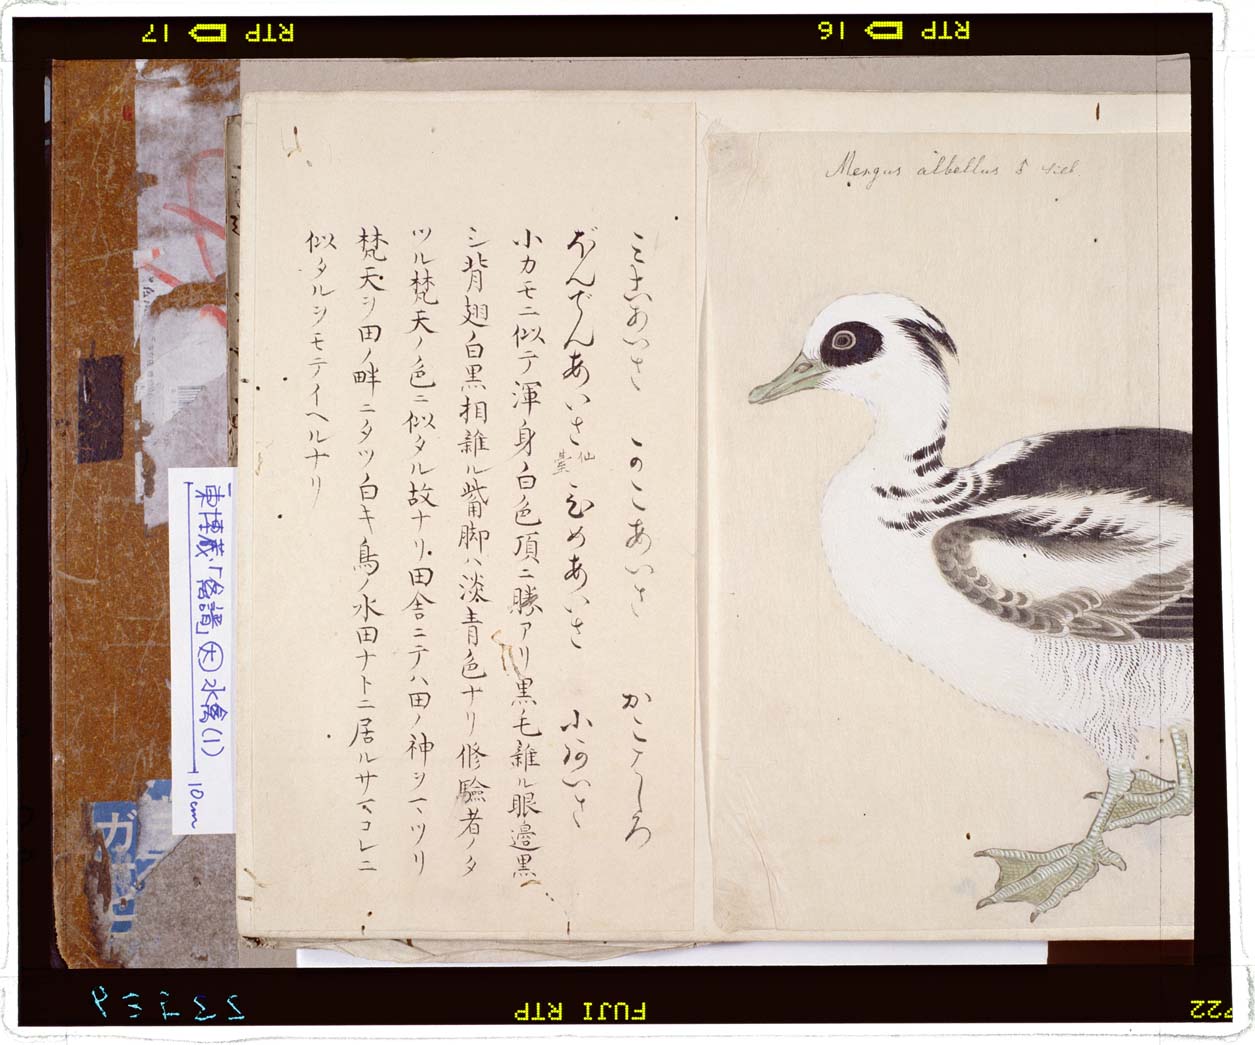 Mergus albellus
みこあいさ このこあいさ かことしろ
ぼんでんあいさ 仙臺 ひめあいさ 小あいさ
小カモニ似テ渾身ノ白色頂ニ勝アリ黒毛雜ル眼邉黒
シ背翅ノ白黒相雜ル觜脚ハ淡青色ナリ修驗者ノタ
ツル梵天ノ色ニ似タル故ナリ田舎ニテハ田ノ神ヲマツリ
梵天ヲ田ノ畔ニタツノ白キ鳥ノ水田ナトニ居ルサマコレニ
似タルヲモテイヘルナリ
東博蔵「禽譜」水禽(1)
10cm
RTP 16
RTP 17
FUJI RTP
722
ガ